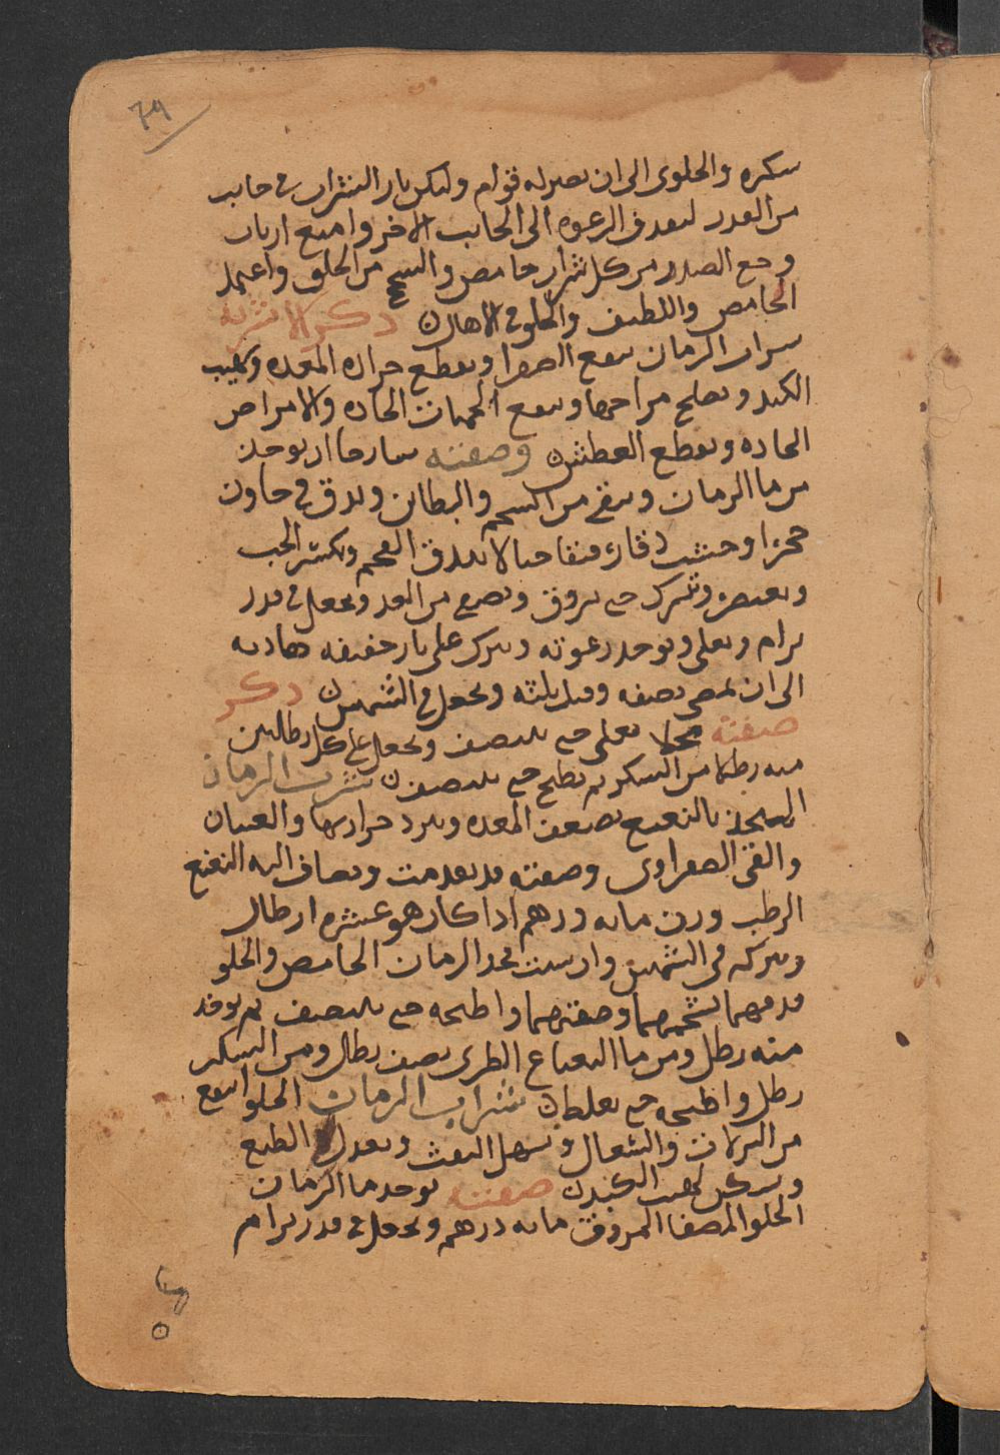 ٧٩
سكره والحلوى الى ان يصير له قوام وليكن نار الشراب في جانب
من القدر ليقذف الرغوه الى الجانب الاخر وامنع ارباب
وجع الصدر من كل شراب حامض والسحج من الحلق واعتمد
الحامض واللطيف والحلو في الاهان ذكر الاشربه
شراب الرمان ينفع الصفرا ويقطع حراره المعده ولهيب
الكبد ويصلح مزاجها وينفع الحميات الحاده والامراض
الحاده ويقطع العطش وصفته ان يوخذ
من ما الرمان وينقى من الشحم والبطاين ويدق في هاون
حجر او خشب لا يندق العجم ويكسر الحب
ويعصر ويترك حتى يروق ويصفى من الغد ويجعل في قدر
برام ويغلى ويوخذ رغوته ويترك على نار خفيفه هاديه
الى ان يمضى نصفه وقيل ثلثه ويجعل في الشمس ذكر
صفته محلا يغلى حتى ينتصف ويجعل على كل رطلين
منه رطلا من السكر ثم يطبخ حتى ينتصف شراب الرمان
المتخذ بالنعنع يضعف المعده ويبرد حرارتها والغثيان
والقى الصفراوى وصفته قد تقدمت ويضاف اليه النعنع
الرطب وزن مايه درهم اذا كان هو عشره ارطال
ويتركه في الشمس وان شيت فخذ الرمان الحامض والحلو
فدقهما بشحمهما وصفيهما واطبخه حتى ينتصف ثم يوخذ
منه رطل ومن ما النعناع الطرى نصف رطل ومن السكر
رطل واطبخه حتى يغلظ شراب الرمان الحلو انفع
من النزلات والسعال ويسهل النفث ويعدل الطبع
ويسكن لهيب الكبد صفته يوخذ ما الرمان
الحلو المصفا المروق مايه درهم ويجعل في قدر برام